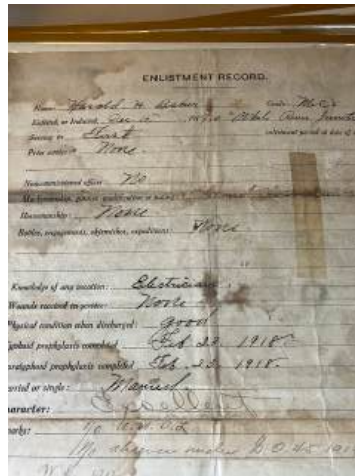 ENLISTMENT RECORD.
Name: Harold H. Grade:
Enlisted, or Inducted, White River Junction
Serving in First enlistment period at date of
Prior service: None.
Noncommissioned officer: No
Marksmanship, gunner qualification or rating:
Horsemanship: None
Battles, engagements, skirmishes, expeditions: None
Knowledge of any vocation: Electrician.
Wounds received in service: None
Physical condition when discharged: good
Typhoid prophylaxis completed Feb. 22. 1918.
Paratyphoid prophylaxis completed Feb. 22. 1918.
Married or single: Married.
Character: Excellent
No A.W.O.L
No absence under G.O. 45 191